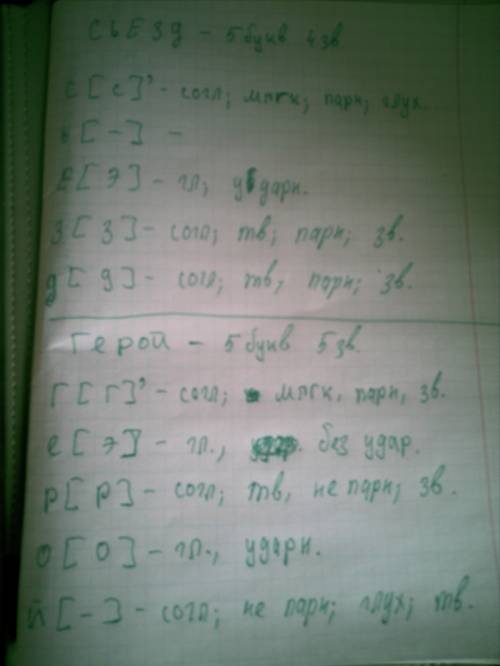 СЬЕЗД – 5 букв 4 зв
С [с]' – согл; мягк; парн; глух.
Ь [–] –
Е [Э] – гл; ударн.
З [З] – согл; тв; парн; зв.
д [д] – согл; тв, парн; зв.
Герой – 5 букв 5 зв.
Г [Г]' – согл; мягк, парн, зв.
е [Э] – гл., без удар.
Р [Р] – согл; тв, не парн; зв.
О [О] – гл., ударн.
Й [–] – согл; не парн; глух; тв.